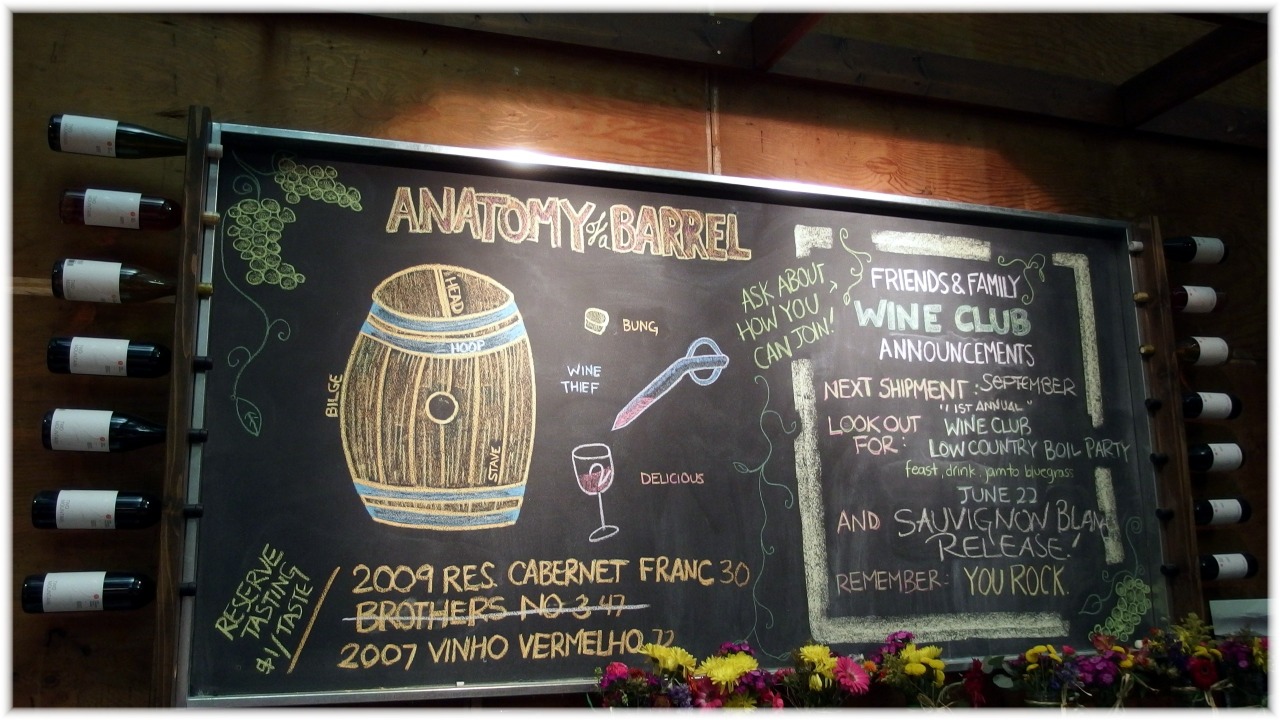 ANATOMY of a BARREL
HEAD
HOOP
BILGE
STAVE
BUNG
WINE
THIEF
DELICIOUS
RESERVE
TASTING
$1/TASTE!
2009 RES. CABERNET FRANC 30
BROTHERS NO 3 47
2007 VINHO VERMELHO 72
ASK ABOUT
HOW YOU
CAN JOIN!
FRIENDS & FAMILY
WINE CLUB
ANNOUNCEMENTS
NEXT SHIPMENT: SEPTEMBER
LOOK OUT
FOR:
"1ST ANNUAL"
WINE CLUB
LOW COUNTRY BOIL PARTY
feast, drink, jam to bluegrass
JUNE 22
AND SAUVIGNON BLANC
RELEASE!
REMEMBER: YOU ROCK.